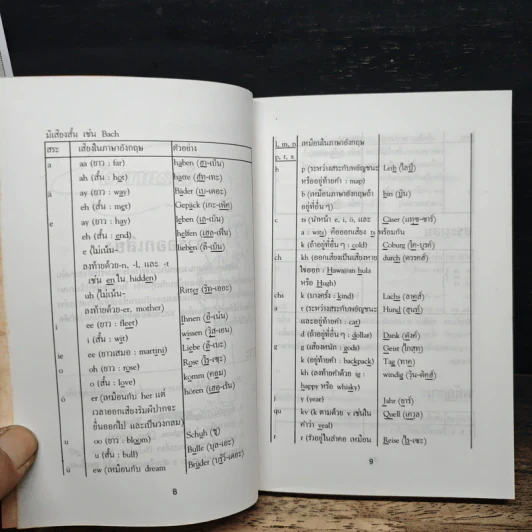 มีเสียงสั้น เช่น Bach
สระ เสียงในภาษาอังกฤษ ตัวอย่าง
a aa (ยาว : far) haben (ฮา-เบ็น)
ah (สั้น : hot) hatte (ฮัท-เทะ)
ä ay (ยาว : way) Bäder (เบ-เดอะ)
eh (สั้น : met) Gepäck (เกะ-เพ็ค)
e ay (ยาว : hay) leben (เล-เบ็น)
eh (สั้น : end) helfen (เฮล-เฟ็น)
e (ไม่เน้น- lieben (ลี-เบ็น)
ลงท้ายด้วย-n, -l, และ -t
เช่น en ใน hidden)
uh (ไม่เน้น- Ritter (ริท-เทอะ)
ลงท้ายด้วย-er, mother)
i ee (ยาว : fleet) Ihnen (อี-เน็น)
i (สั้น : wit) wissen (วิส-เซ็น)
ie ee (ยาวเสมอ : martini) Liebe (ลี-เบะ)
o oh (ยาว : rose) Rose (โร-เซะ)
o (สั้น : love) komm (คอม)
ö er (เหมือนกับ her แต่ hören (เฮอ-เร็น)
เวลาออกเสียงริมฝีปากจะ
ยื่นออกไป และเป็นวงกลม)
u oo (ยาว : bloom) Schuh (ชู)
u (สั้น : bull) Bulle (บุล-เละ)
ü ew (เหมือนกับ dream Brüder
8
l, m, n เหมือนในภาษาอังกฤษ
p, t, x
b p (ระหว่างสระกับพยัญชนะ Leib (ไลป์)
หรืออยู่ท้ายคำ : map)
b (เหมือนในภาษาอังกฤษถ้า bin (บิน)
อยู่ที่อื่น ๆ)
c ts (นำหน้า e, i, ö, และ
ä : wits) คือออกเสียง ts พร้อมกัน
k (ถ้าอยู่ที่อื่น ๆ : cold) Coburg (โค-บวร์ก)
ch kh (ออกเสียงเป็นเสียงหาย durch
ใจออก : Hawaiian hula
หรือ Hugh)
chs k (บางครั้ง : kind) Lachs (ลาคส์)
d t (ระหว่างสระกับพยัญชนะ Hund (ฮุนท์)
และอยู่ท้ายคำ : cat)
d (ถ้าอยู่ที่อื่น ๆ : dollar) Dank (ดังค์)
g g (เสียงหนัก : gods) Geist (ไกสท)
k (อยู่ท้ายคำ : backpack) Tag (ทาค)
kh (ลงท้ายคำด้วย ig : windig (วิน-ดิคส์)
happy หรือ whisky)
j y (year) Jahr (ยาร์)
qu kv (k ตามด้วย v เช่นใน Quell (เควล)
คำว่า veal)
r r (รัวอยู่ในลำคอ เหมือน Reise (ไร-เซะ)
9